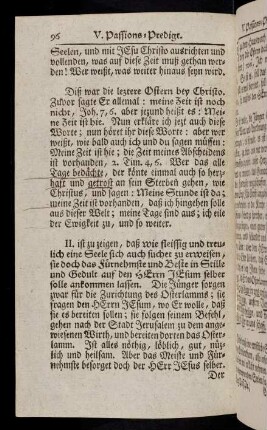 96 V. Passions-Predigt.
Seelen, und mit JEsu Christo ausrichten und
vollenden, was auf diese Zeit muß gethan wer-
den! Wer weißt, was weiter hinaus seyn wird.
Diß war die leztere Ostern bey Christo.
Zuvor sagte Er allemal: meine Zeit ist noch
nicht, Joh. 7, 6. aber jezund heißt es: Mei-
ne Zeit ist hie. Nun erkläre ich jezt auch diese
Worte; nun höret ihr diese Worte: aber wer
weißt, wie bald auch ich und du sagen müssen:
Meine Zeit ist hie; die Zeit meines Abscheidens
ist vorhanden, 2. Tim. 4, 6. Wer das alle
Tage bedächte, der könte einmal auch so herz-
haft und getrost an sein Sterben gehen, wie
Christus, und sagen: Meine Stunde ist da;
meine Zeit ist vorhanden, daß ich hingehen solle
aus dieser Welt; meine Tage sind aus; ich eile
der Ewigkeit zu, und so weiter.
II. ist zu zeigen, daß wie fleissig und treu-
lich eine Seele sich auch sucher zu erweisen,
sie doch das Fürnehmste und Beste in Stille
und Gedult auf den HErrn JEsum selber
solle ankommen lassen. Die Jünger sorgen
zwar für die Zurichtung des Osterlamms; sie
fragen den HErrn JEsum, wo Er wolle, daß
sie es bereiten sollen; sie folgen seinem Befehl,
gehen nach der Stadt Jerusalem zu dem ange-
wiesenen Wirth, und bereiten dorten das Oster-
lamm. Ist alles nöthig, löblich, gut, nüz-
lich und heilsam. Aber das Meiste und Für-
nehmste besorget doch der HErr JEsus selber.
Der